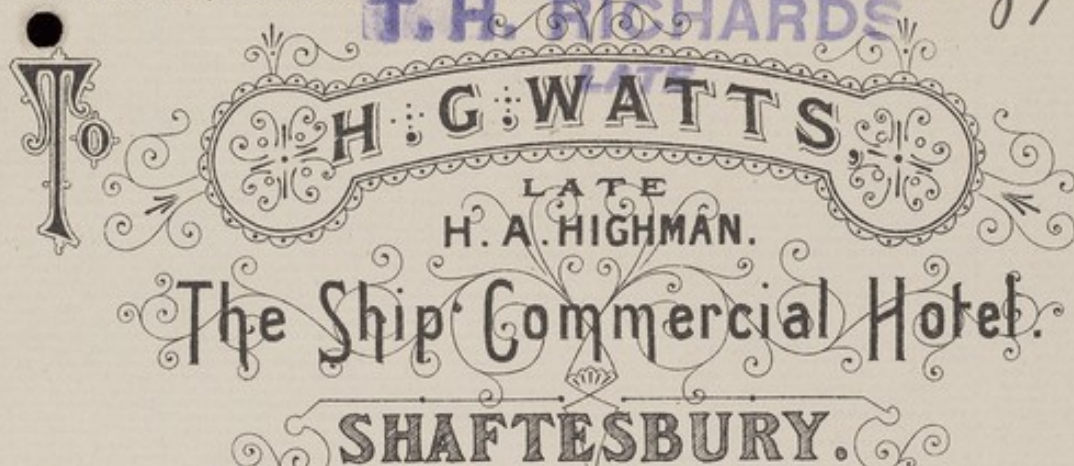 T. H. RICHARDS
LATE
To
H. G. WATTS,
LATE
H. A. HIGHMAN.
The Ship Commercial Hotel.
SHAFTESBURY.